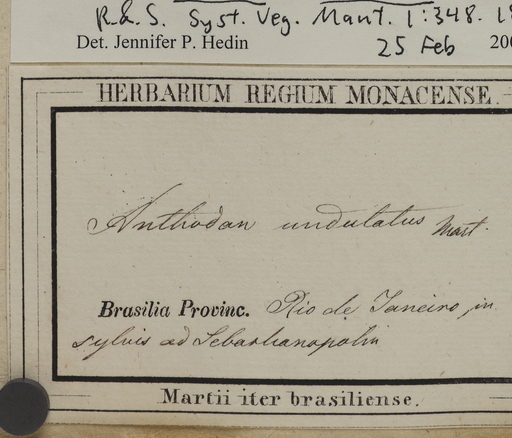 R. & S. Syst. Veg. Mant. 1:348.
Det. Jennifer P. Hedin 25 Feb 200
HERBARIUM REGIUM MONACENSE.
Anthodon undulatus Mart.
Brasilia Provinc. Rio de Janeiro, in
sylvis ad Sebastianopolin
Martii iter brasiliense.